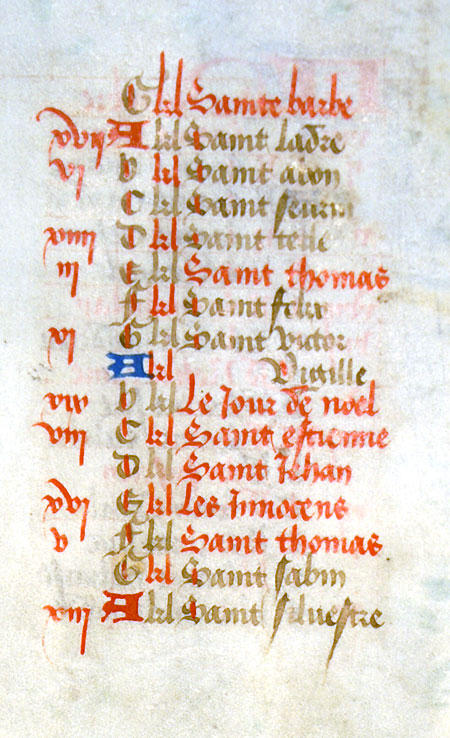 G kl Sainte barbe
xvii A kl Saint ladre
vi b kl Saint abon
C kl Saint seurin
xiiii D kl Saint telle
iii E kl Saint thomas
f kl Saint felix
xi G kl Saint victor
A kl Vigille
xix b kl Le Jour de noel
viii C kl Saint estienne
D kl Saint Jehan
xvi E kl Les Innocens
v f kl Saint thomas
G kl Saint sabin
xiii A kl Saint silvestre